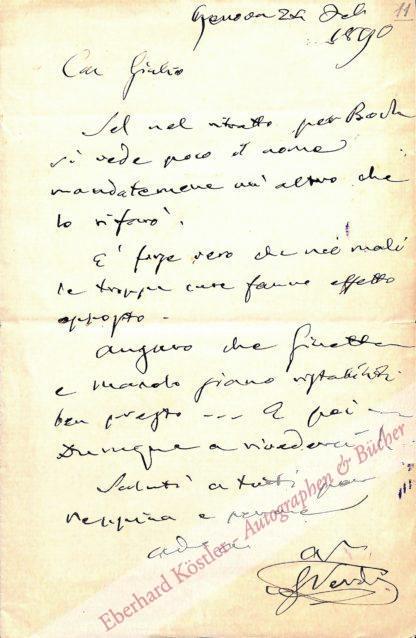 11
Genova 24 Feb
1890
Car Giulio
Se nel ritratto per Bock
si vede poco il nome
mandatemene un altro che
lo rifarò.
E' forse vero che nei mali
le troppe cure fanno effetto
opposto -
Auguro che Ginetta
e Manolo siano ristabiliti
ben presto --- E poi
Dunque a rivederci
Saluti a tutti
Peppina e
addio
G Verdi
Eberhard Köstler Autographen & Bücher